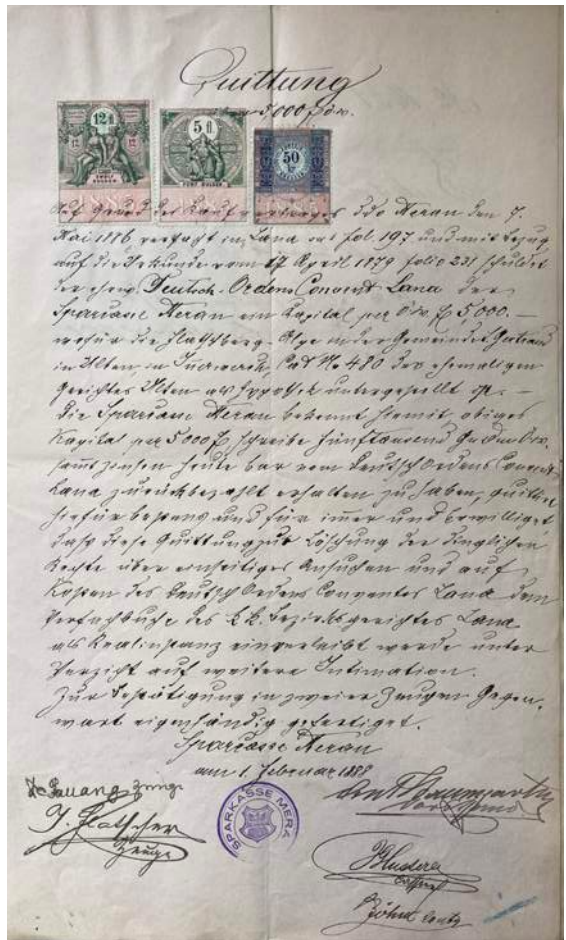 Quittung
5000 f ö.W.
12 fl
12 12
ZWÖLF
GULDEN
5 fl
FÜNF GULDEN
50
Auf Grund des Kaufvertrages ddo Meran den 7.
Mai 1886, verfacht in Lana sub fol. 197 und mit Bezug
auf die Urkunde vom 17 April 1879 folio 231 schuldet
der ehrw. Deutsch-Ordens Convent Lana der
Sparcasse Meran ein Kapital per ö.W. f 5,000.—
wofür die Flatschberg-Alpe in der Gemeinde St Gertraud
in Ulten, in Cat. No 480 des ehemaligen
Gerichtes Ulten als Hypothek untergestellt ist.—
Die Sparcasse Meran bekennt hiemit, obiges
Kapital per 5000 f, schreibe fünftausend Gulden ö.W.
sammt Zinsen heute bar vom Deutsch Ordens Convent
Lana zurückbezahlt erhalten zu haben, quittirt
hiefür bestens und für immer und bewilliget
daß diese Quittung zur Löschung der dinglichen
Rechte über einseitiges Ansuchen und auf
Kosten des Deutsch Ordens Conventes Lana dem
Verfachbuche des k.k. Bezirksgerichtes Lana
als Realinstanz einverleibt werde unter
Verzicht auf weitere Intimation.
Zur Bestätigung in zweier Zeugen Gegen,
wart eigenhändig gefertiget.
Sparcasse Meran
am 1. Februar 1888
Zeuge
J. Flatscher
Zeuge
SPARKASSE MERA